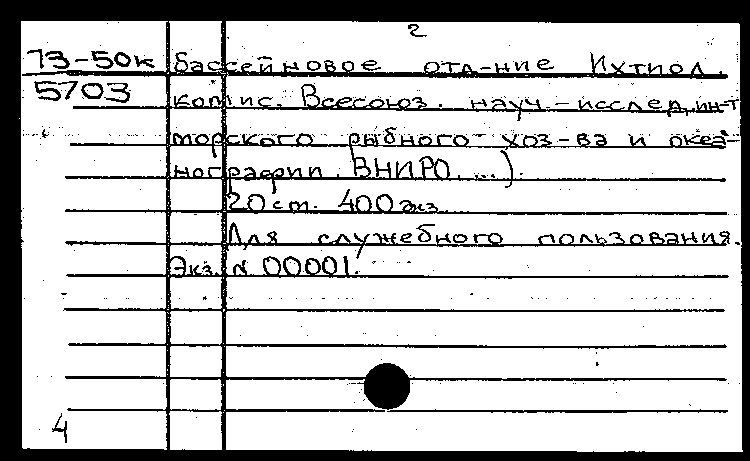 2
73-50к бассейновое отд-ние Ихтиол.
5703 комис. Всесоюз. науч-исслед, ин-т
морского рыбного хоз-ва и океа-
нографии. ВНИРО. ...).
20 ст. 400 экз
Для служебного пользования.
Экз. N 00001.
4